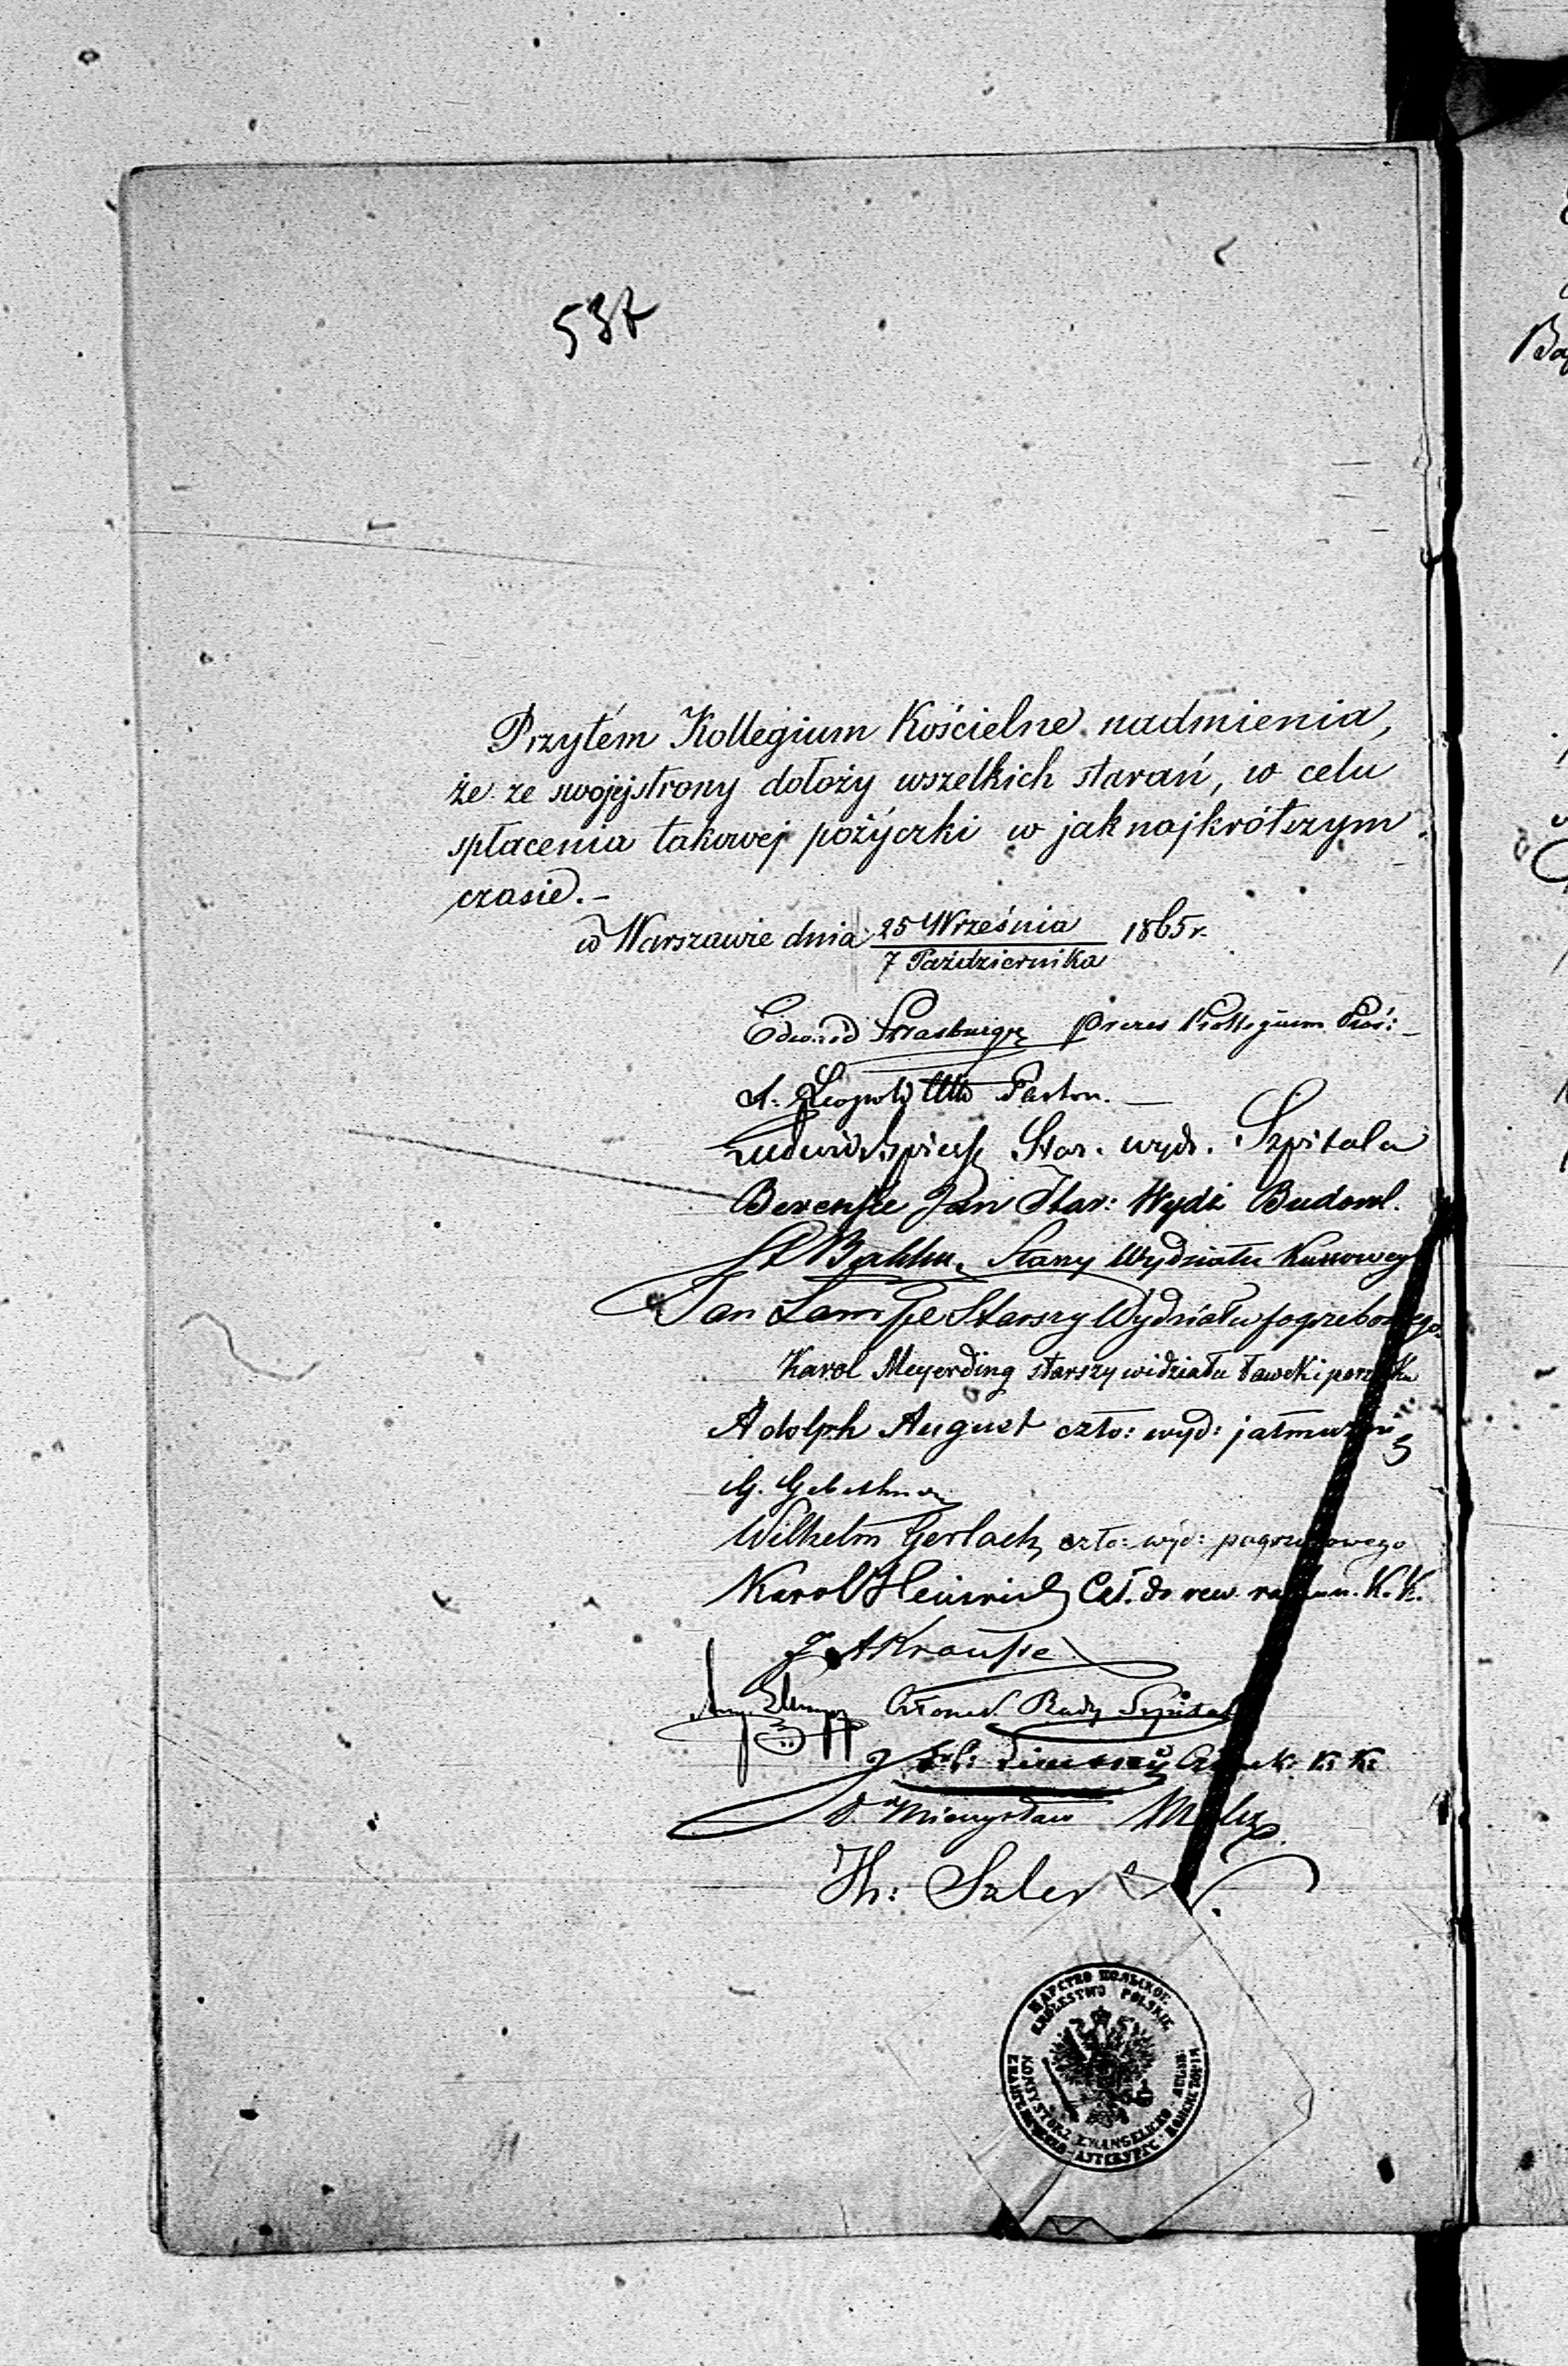 537
Przytém Kollegium Kościelne nadmienia,
że ze swojéj strony dołoży wszelkich starań, w celu
spłacenia takowej pożyczki w jaknajkrótszym
czasie.–
w Warszawie dnia 25 Września 1865 r.
7 Października
Edward Strasburger Prezes Kollegium Koś:
Leopold Otto Pastor.
Ludwik Spiess Star. wydz. Szpitala
Berenste Jan Star: Wydz Budowl.
Starszy Wydziału
Jan Lampe Starszy Wydziału pogrzebowego
Karol Meyerding starszy widziału ławek i porządku
Adolph August czło: wyd: jałmużny
G. Gebethner
Wilhelm Gerlach czło: wyd: pogrzebowego
Karol Heinrich Czł. do rew. rachun. K. K.
J. A Krausse
Członek Rady Szpital
Członek K: K:
Dr Mieczysław Malcz
Th: Szler
ЦАРСТВО ПОЛЬСКОЕ
KRÓLESTWO POLSKIE
KONSYSTORZ EWANGELICKO-AUGSB:
ЕВАНГЕЛИЧЕСКО-АУГСБУРГС. КОНСИСТОРІЯ